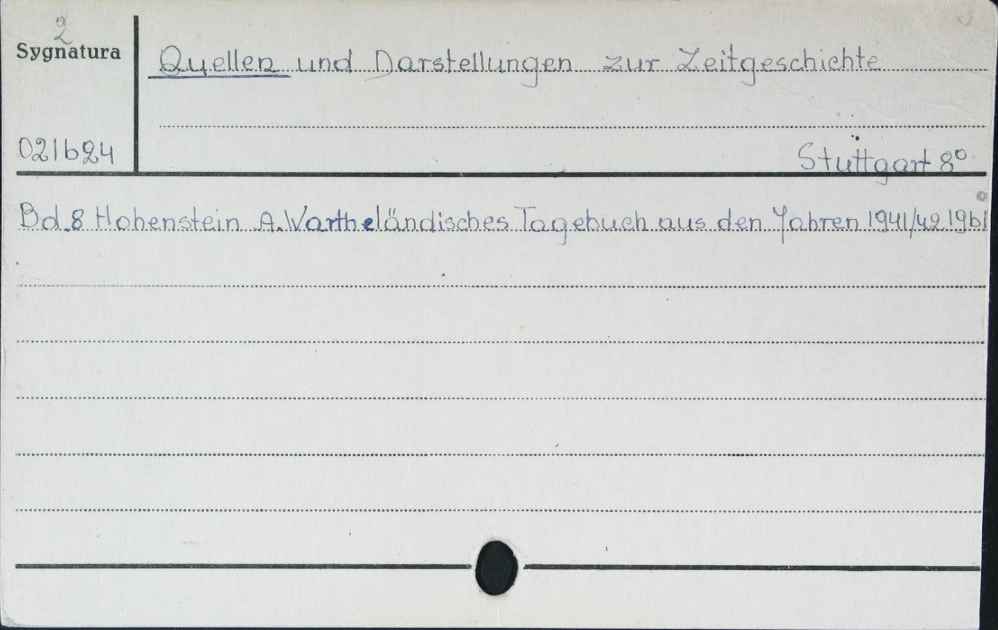 2
Sygnatura
Quellen und Darstellungen zur Zeitgeschichte
021624
Stuttgart 8°
Bd.8 Hohenstein A. Wartheländisches Tagebuch aus den Jahren 1941/42 1961